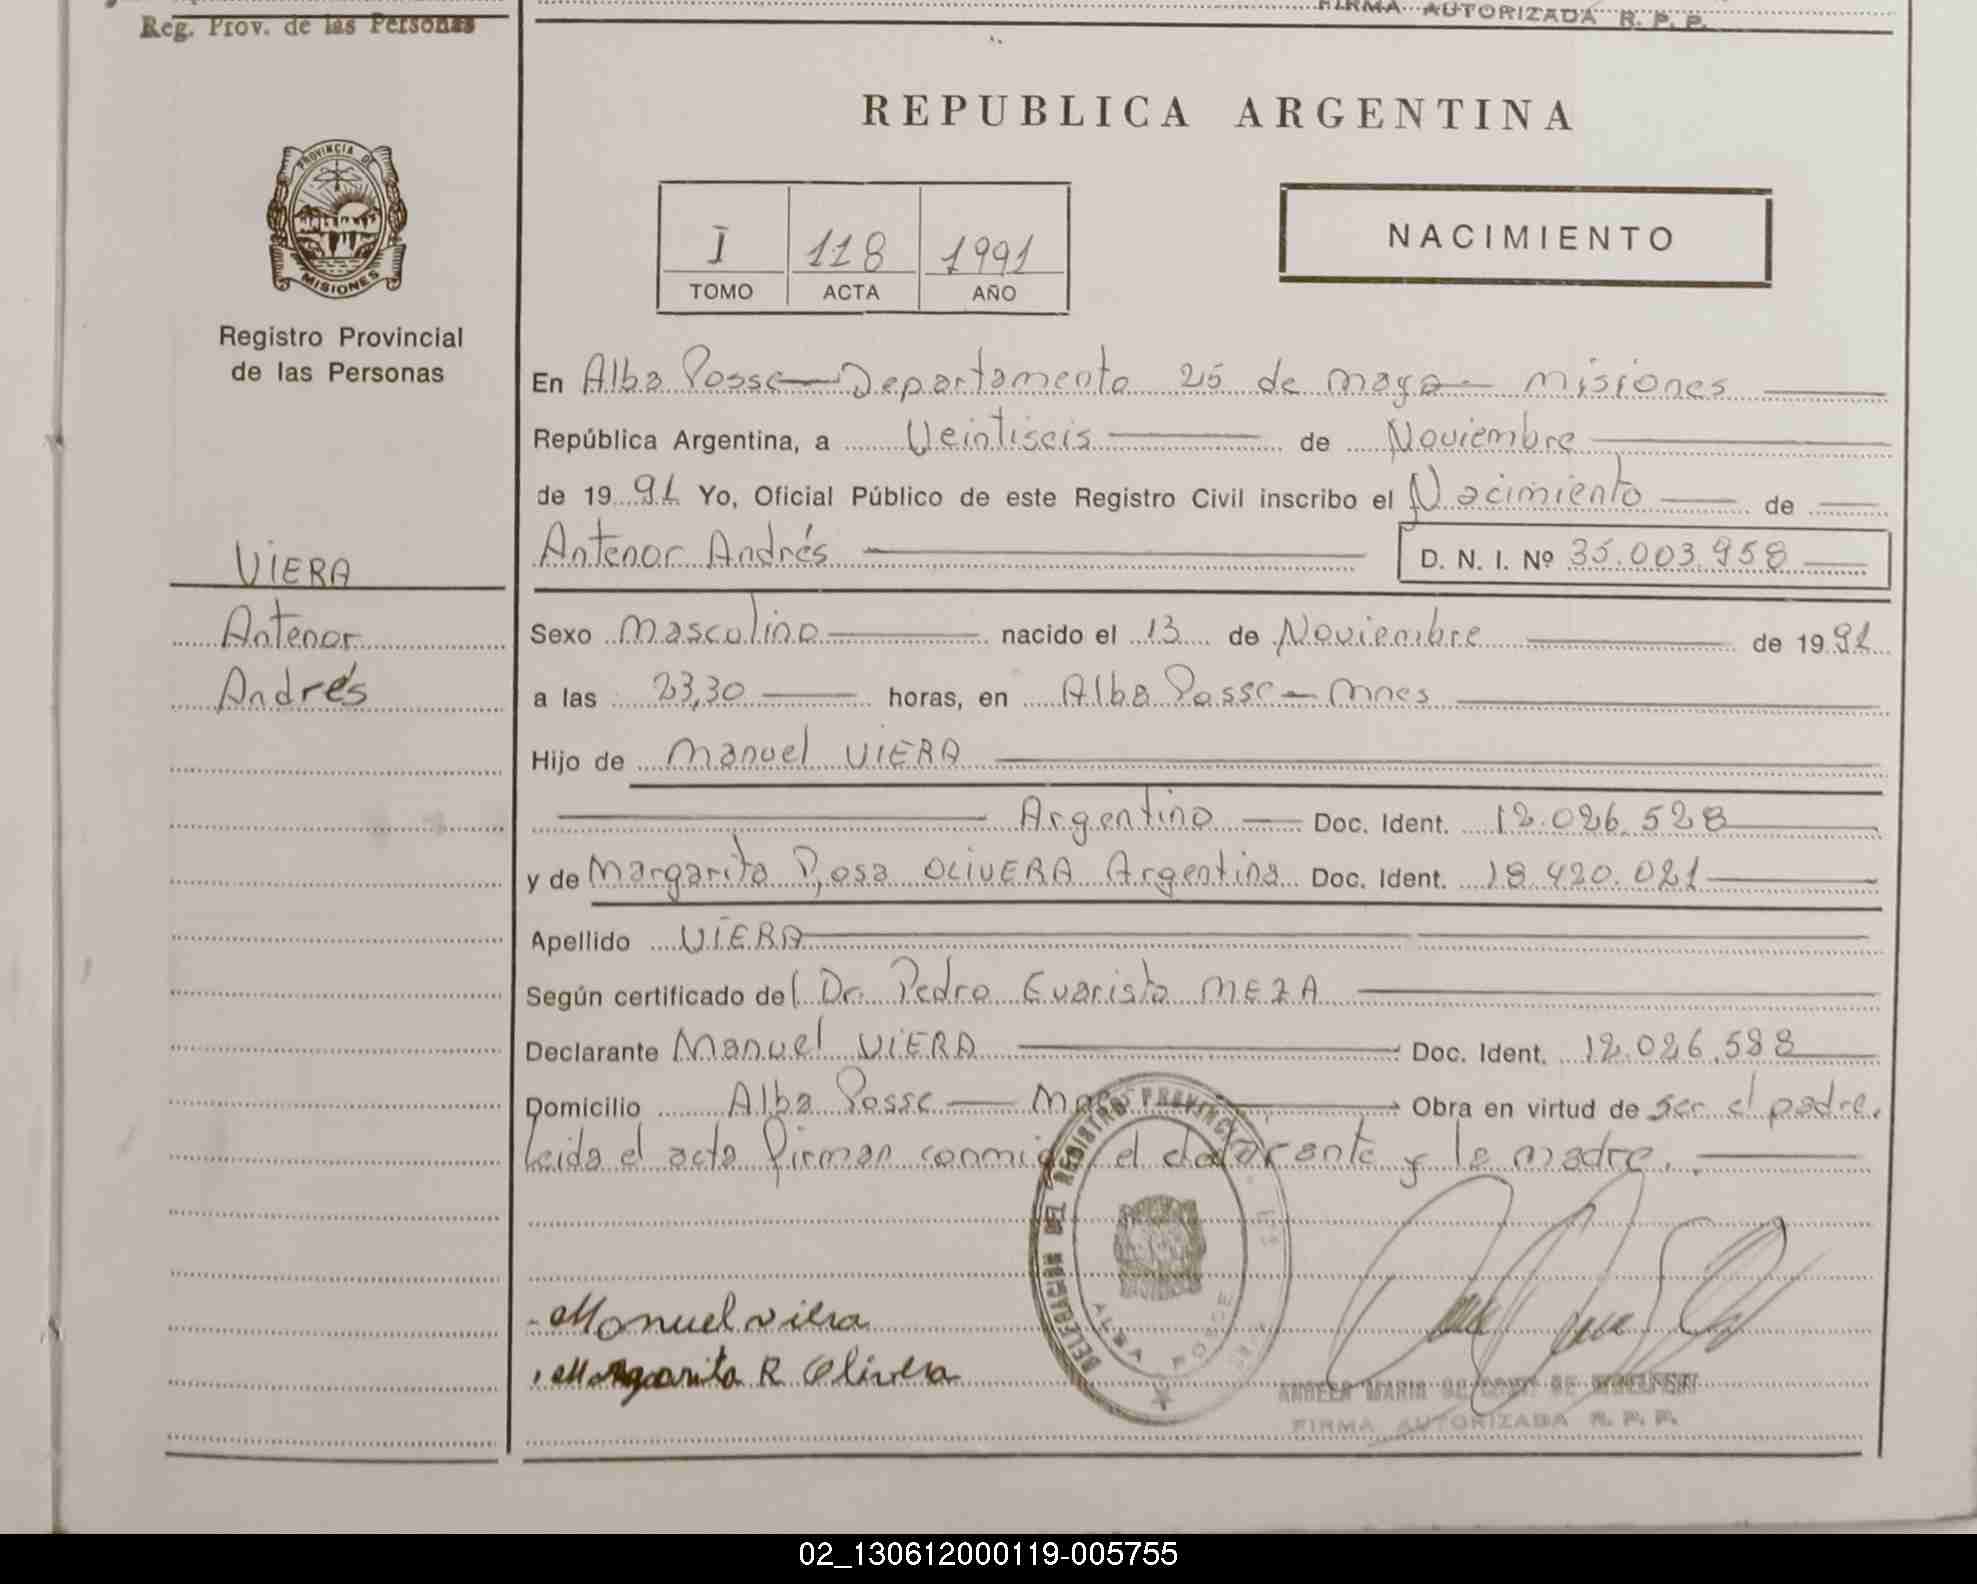 Reg. Prov. de las Personas
FIRMA AUTORIZADA R. P. P.
PROVINCIA DE
MISIONES
Registro Provincial
de las Personas
VIERA
Antenor
Andrés
REPUBLICA ARGENTINA
I 118 1991
TOMO ACTA AÑO
NACIMIENTO
En Alba Posse - Departamento 25 de mayo - misiones
República Argentina, a Veintiseis de Noviembre
de 1991 Yo, Oficial Público de este Registro Civil inscribo el Nacimiento de
Antenor Andrés D. N. I. Nº 35.003.958
Sexo masculino nacido el 13 de Noviembre de 1991
a las 23,30 horas, en Alba Posse - mnes
Hijo de manuel VIERA
Argentino Doc. Ident. 12.026.528
y de Margarita Rosa OLIVERA Argentina Doc. Ident. 18.420.021
Apellido VIERA
Según certificado del Dr. Pedro Evaristo MEZA
Declarante Manuel VIERA Doc. Ident. 12.026.528
Domicilio Alba Posse - Mnes Obra en virtud de ser el padre.
Leida el acta firman conmigo el declarante y la madre.
DELEGACION DEL REGISTRO PROVINCIAL
ALBA POSSE
Manuel viera
Margarita R Olivera
FIRMA AUTORIZADA R. P. P.
02_130612000119-005755